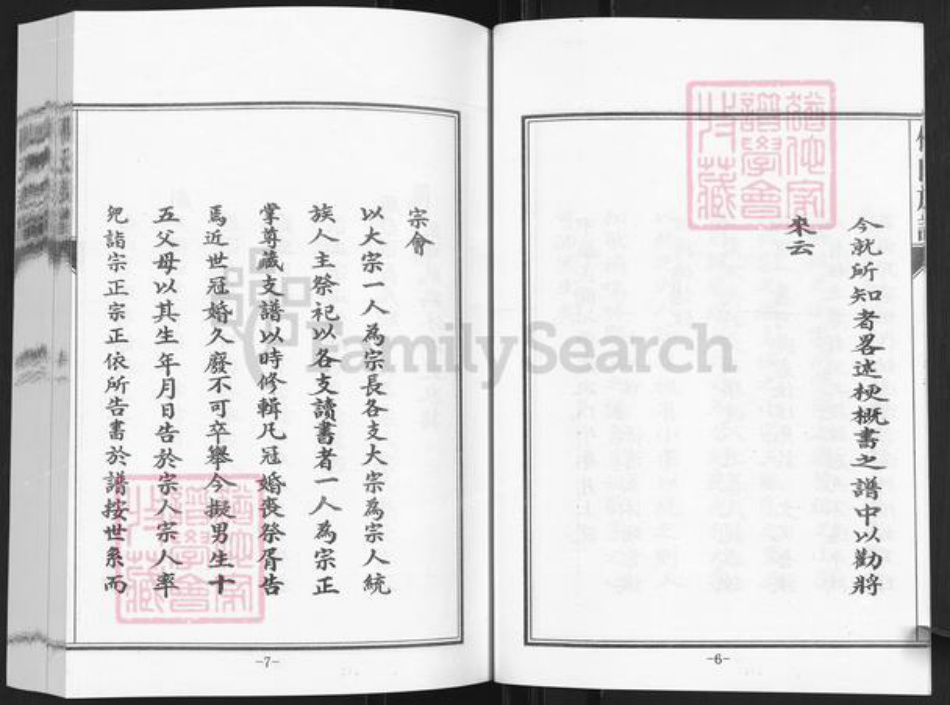 今就所知者畧述梗概書之譜中以勸將
來云
-6-
宗會
以大宗一人為宗長各支大宗為宗人統
族人主祭祀以各支讀書者一人為宗正
掌尊藏支譜以時修輯凡冠婚喪祭胥告
焉近世冠婚久廢不可卒舉今擬男生十
五父母以其生年月日告於宗人宗人率
詣宗正宗正依所告書於譜按世系而
-7-
FamilySearch
譜學會
收藏
譜學會
收藏